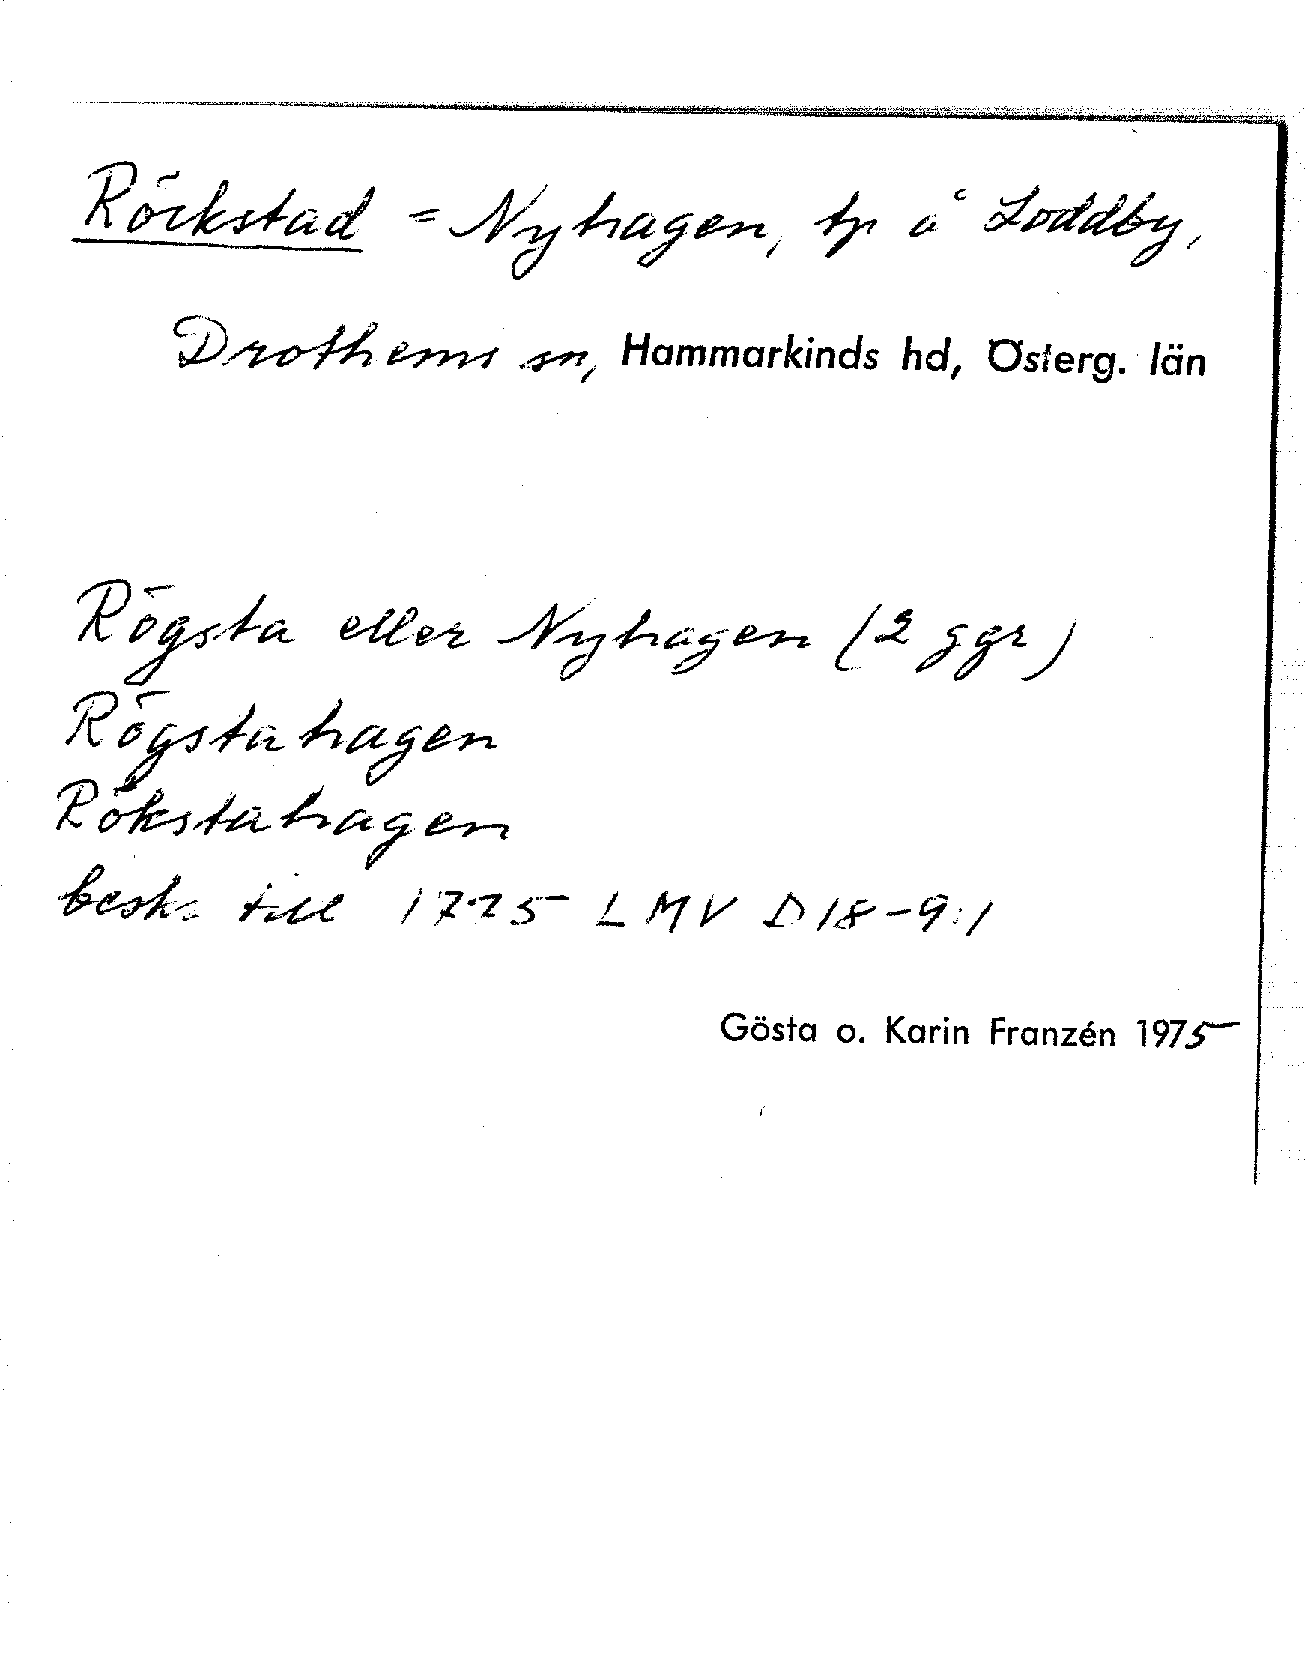 Röckstad = Nyhagen, tp å Loddby,
Drothems sn, Hammarkinds hd, Österg. län
Rögsta eller Nyhagen (2 ggr)
Rögstahagen
Rökstahagen
beskr till 1775 LMV D18-9:1
Gösta o. Karin Franzén 1975